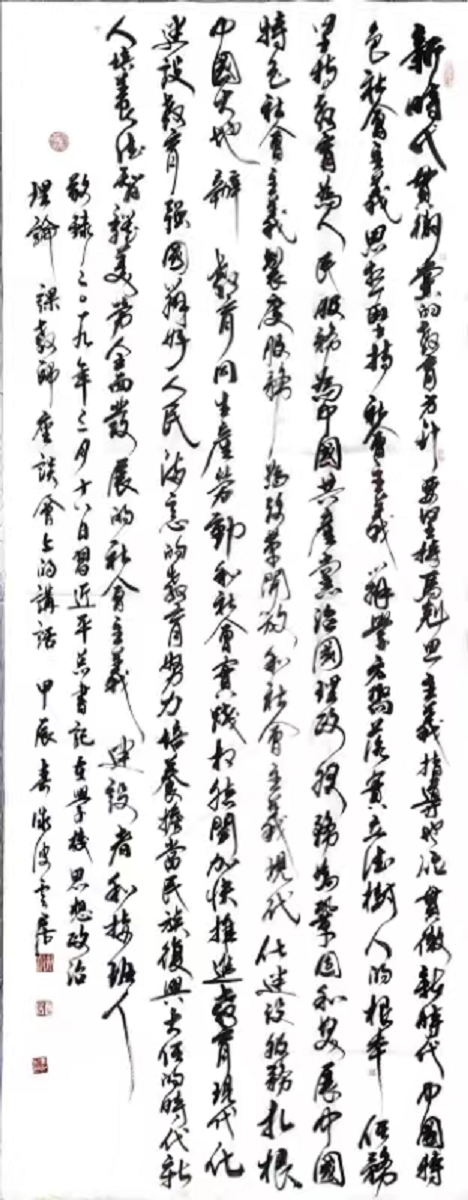 新時代貫徹黨的教育方針要堅持馬剋思主義指導地位貫徹新時代中國特
色社會主義思想堅持社會主義辦學方嚮落實立德樹人的根本任務
堅持教育為人民服務為中國共産黨治國理政服務為鞏固和發展中國
特色社會主義製度服務為改革開放和社會主義現代化建設服務扎根
中國大地辦教育同生産勞動和社會實踐相結閤加快推進教育現代化
建設教育强國辦好人民滿意的教育努力培養擔當民族復興大任的時代新
人培養德智體美勞全面發展的社會主義建設者和接班人
敬錄二〇一九年三月十八日習近平总書記在學校思想政治
理論課教師座談會上的講話甲辰春